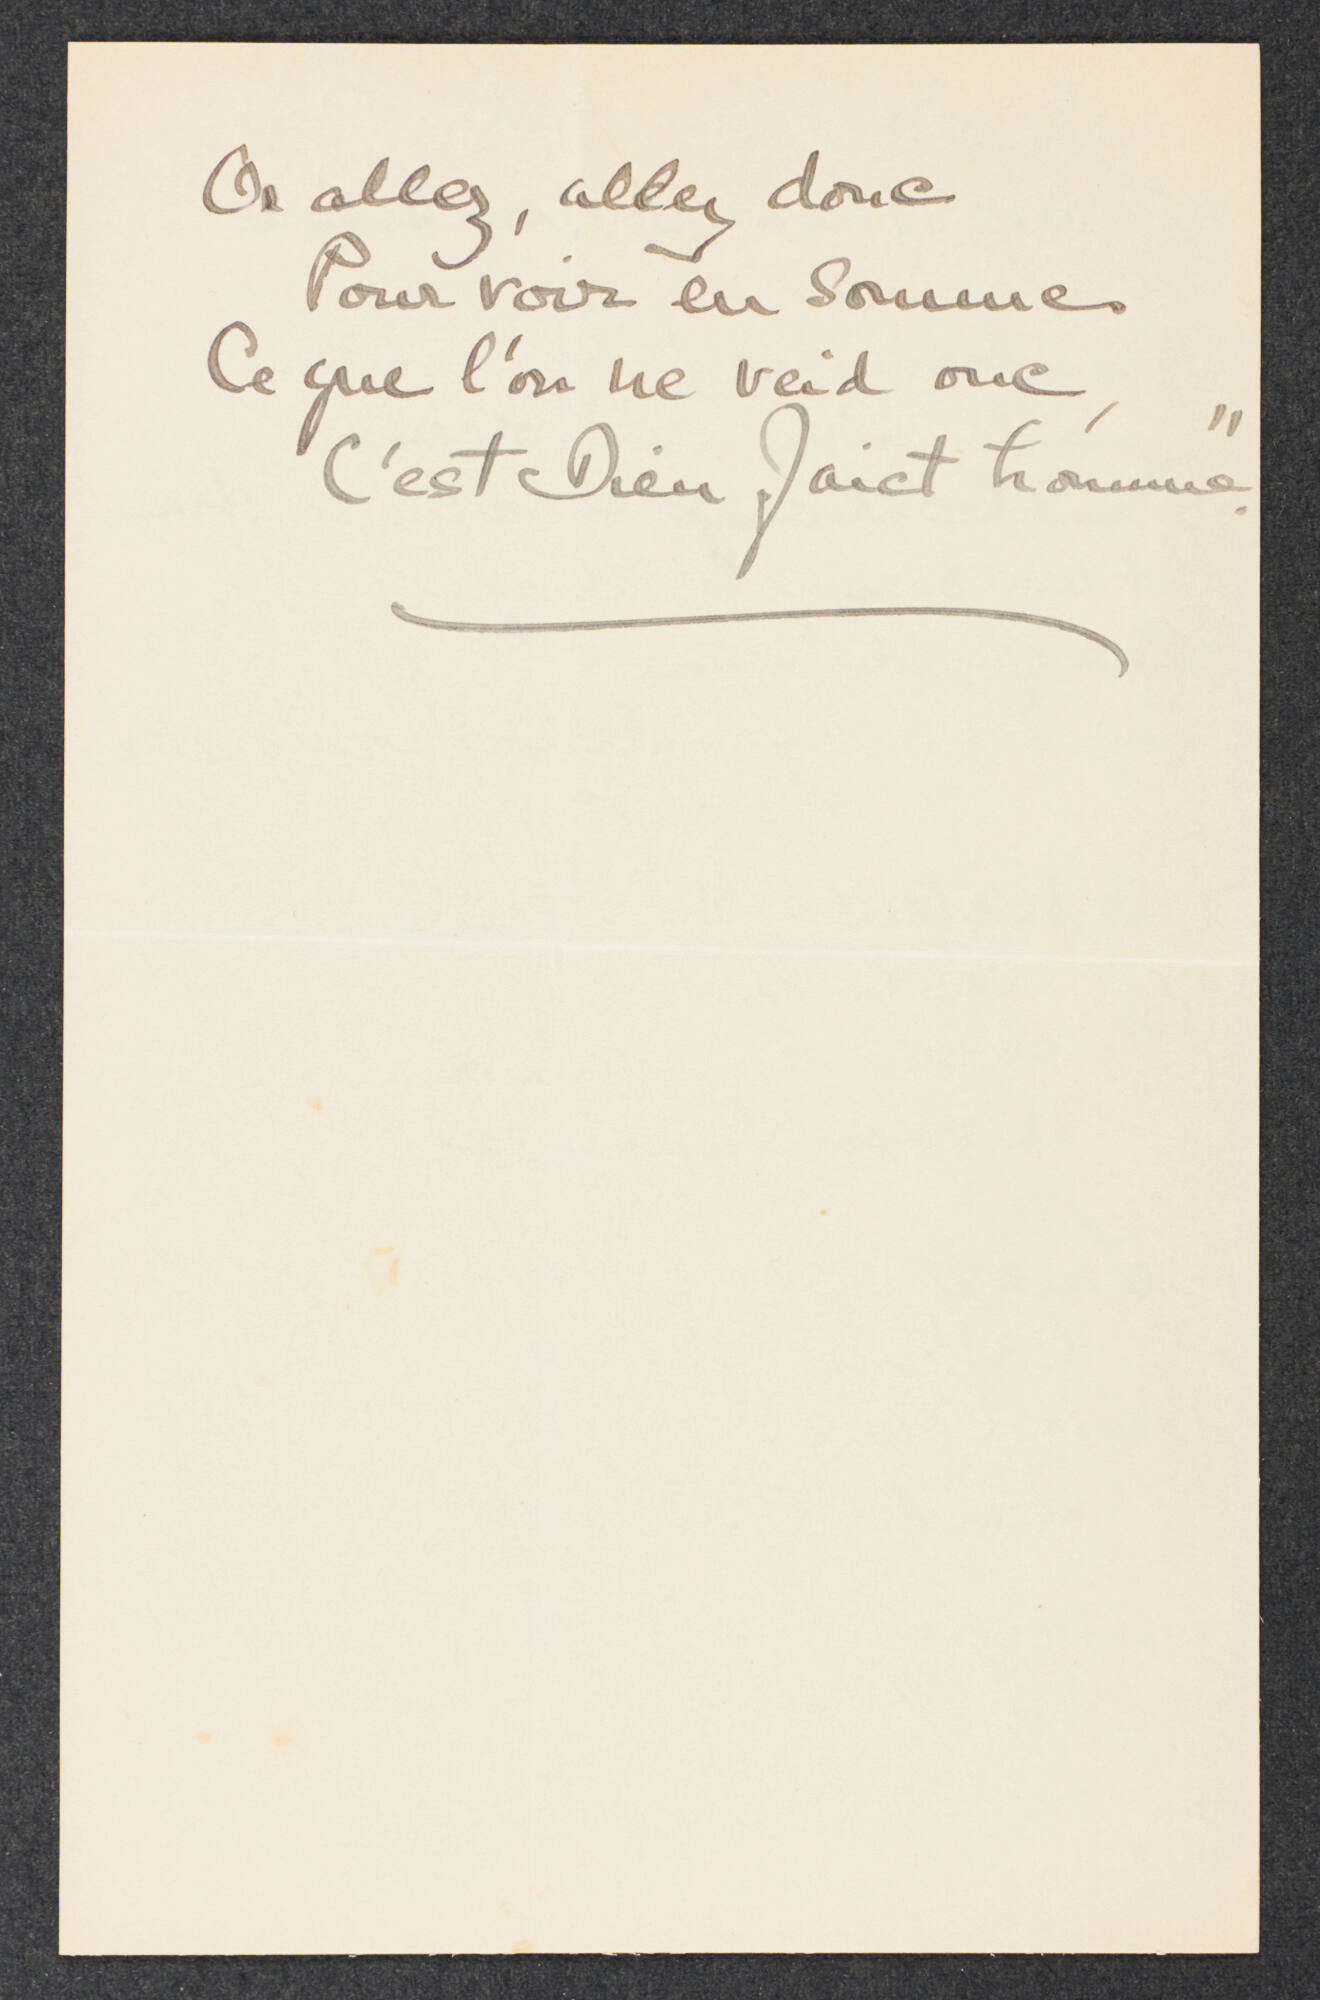 Or allez, allez donc
Pour voir en Somme.
Ce que l'on ne veid onc,
C'est Dieu faict homme."